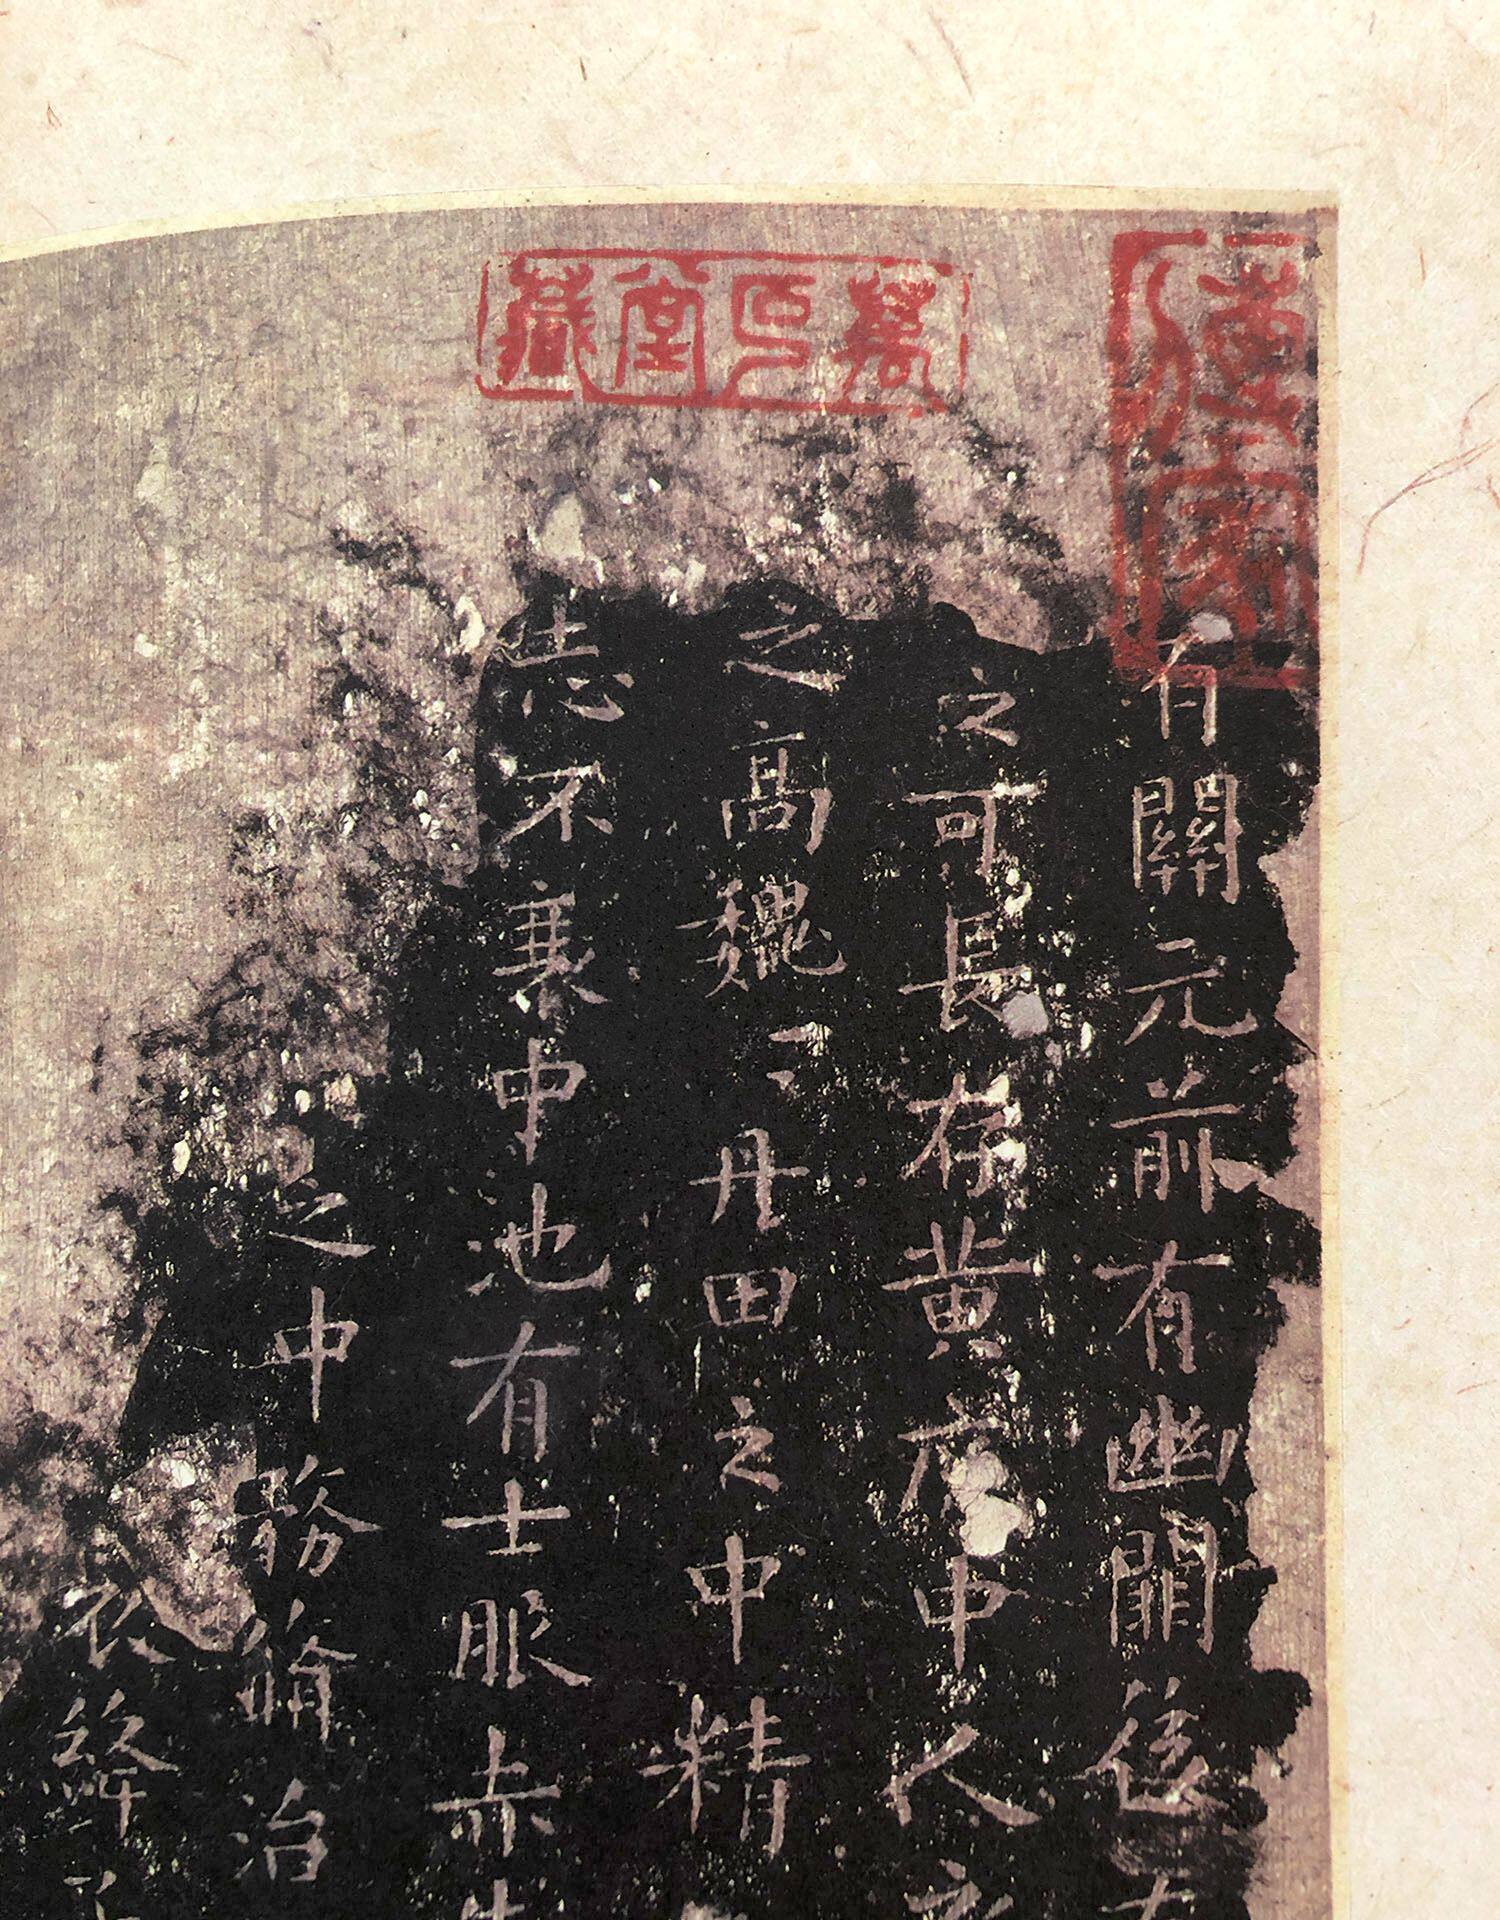 有關元前有幽關後有
之可長存黃庭中人之
之高巍〻丹田之中精
志不衰中池有士服赤生
之中務脩治
衣絳
萬 堂藏